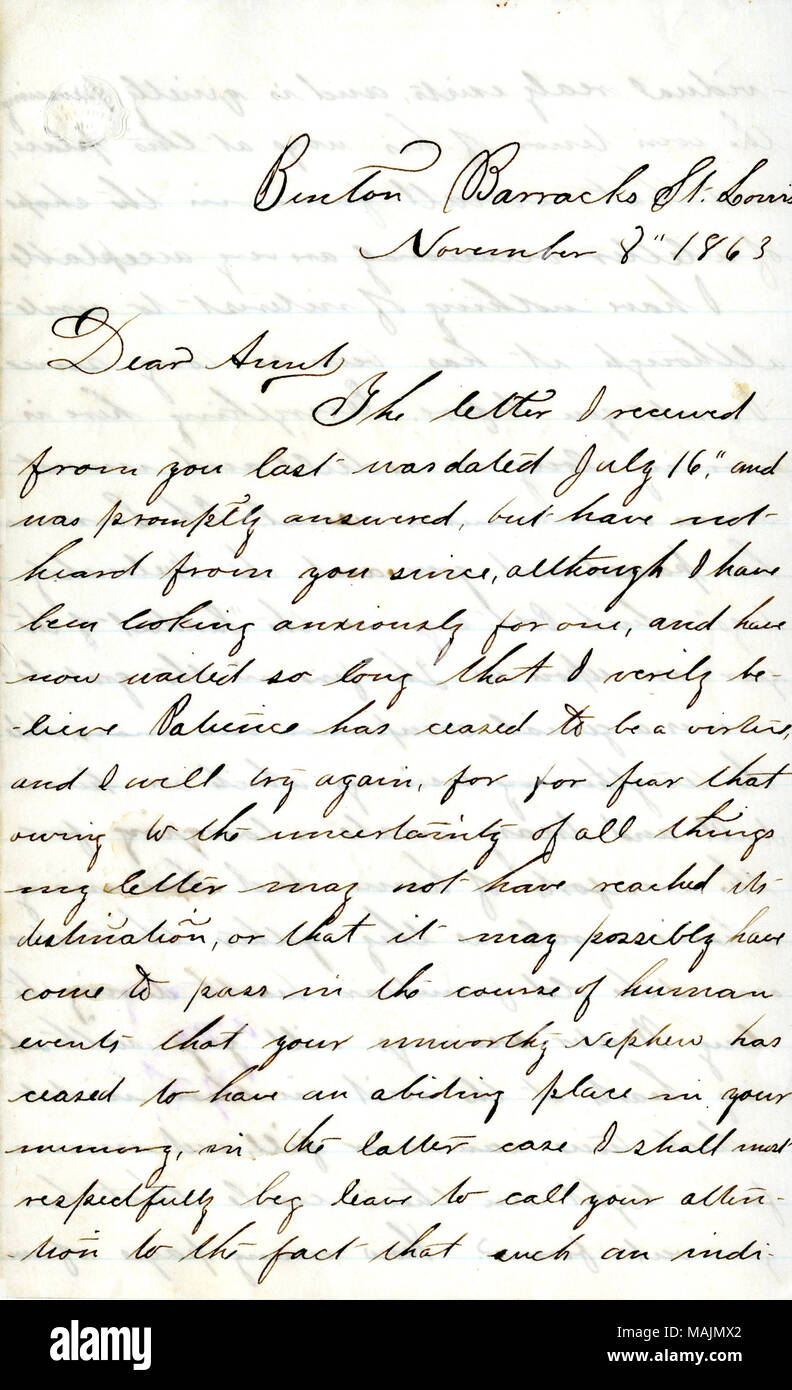 Benton Barracks St. Louis
November 8" 1863
Dear Aunt
The letter I received
from you last was dated July 16", and
was promptly answered, but have not
heard from you since, although I have
been looking anxiously for one, and have
now waited so long that I verily be-
-lieve Patience has ceased to be a virtue,
and I will try again, for for fear that
owing to the uncertainty of all things
my letter may not have reached its
destination, or that it may possibly have
come to pass in the course of human
events that your unworthy Nephew has
ceased to have an abiding place in your
memory, in the latter case I shall most
respectfully beg leave to call your atten-
-tion to the fact that such an indi-
alamy
Image ID: MAJMX2
www.alamy.com